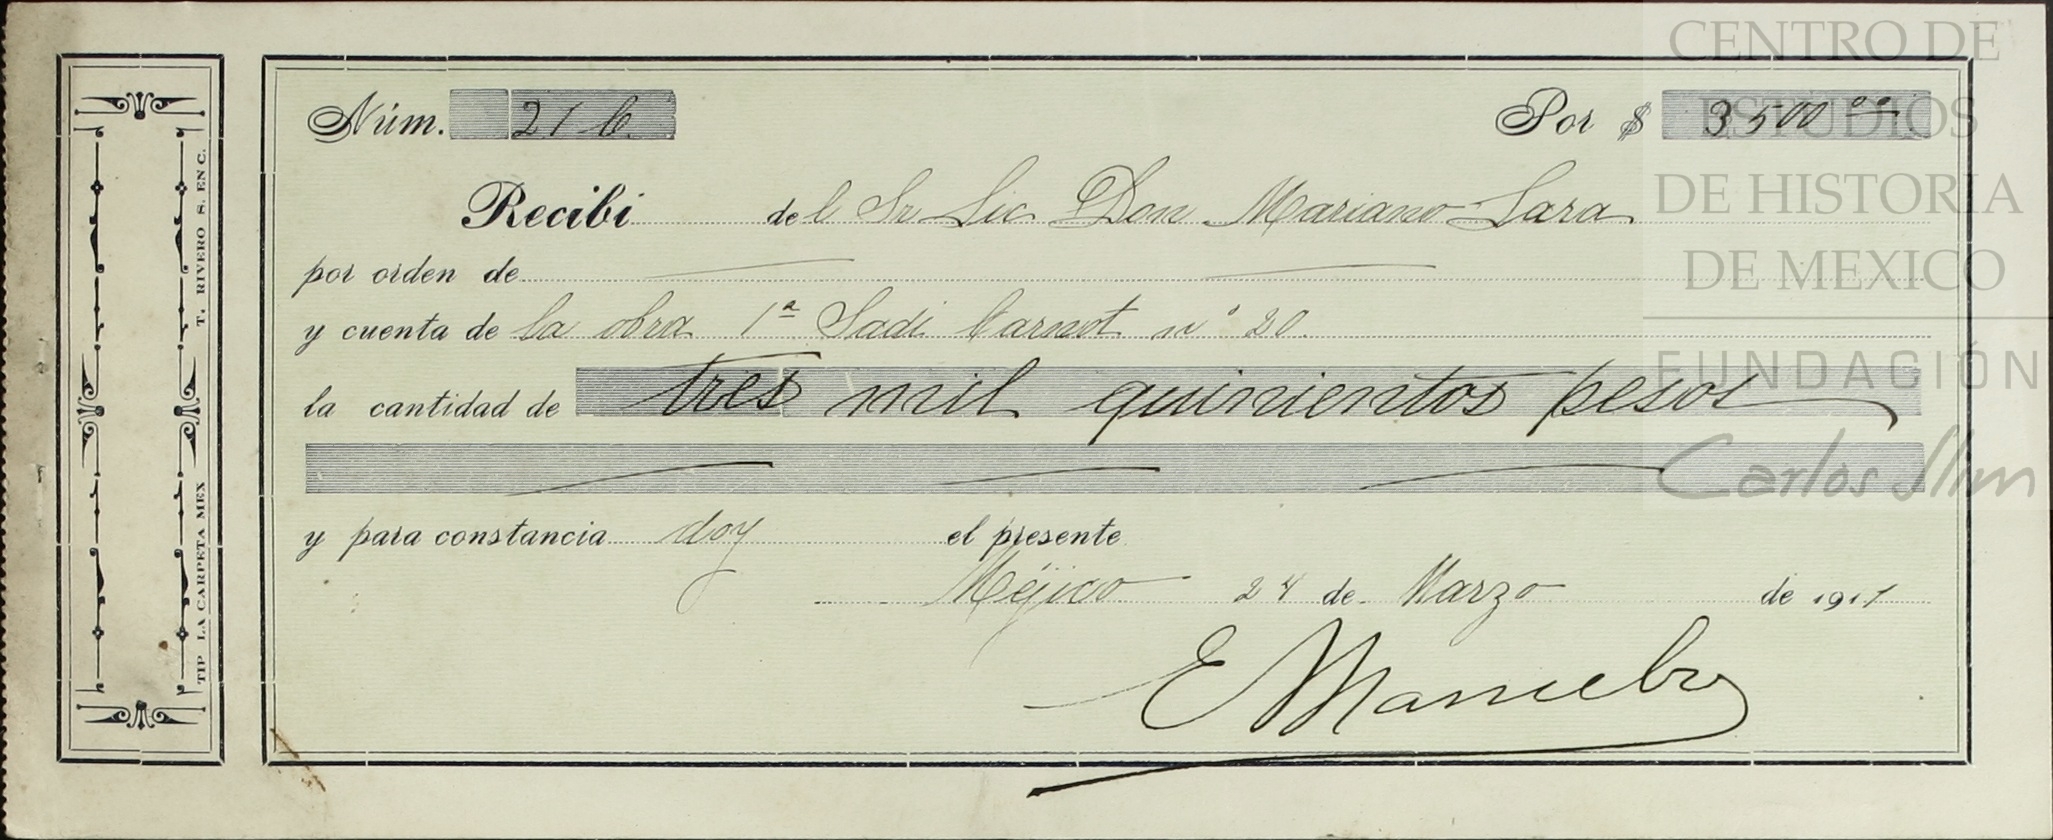 Núm. 21 b. Por $ 3500 oo
Recibí del Sr Lic Don Mariano Lara
por orden de
y cuenta de la obra 1ª Sadi Carnot nº 20.
la cantidad de tres mil quinientos pesos
y para constancia doy el presente
Méjico 24 de Marzo de 1911
E
T. RIVERO S. EN C.
TIP LA CARPETA MEX
CENTRO DE
ESTUDIOS
DE HISTORIA
DE MEXICO
FUNDACIÓN
Carlos Slim